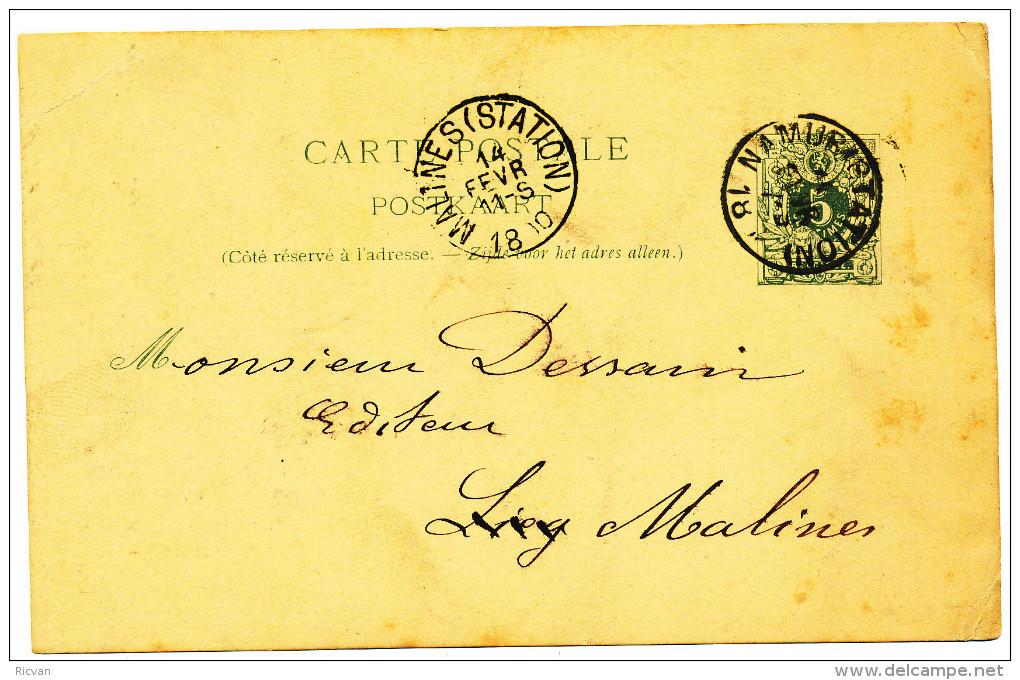 CARTE POSTALE
POSTKAART
(Côté réservé à l'adresse. — Zijde voor het adres alleen.)
MALINES (STATION)
14
FEVR
11-S
18
NAMUR (STATION)
18
5
Monsieur Dessain
Editeur
Lieg Malines
Ricvan
delcampe.net